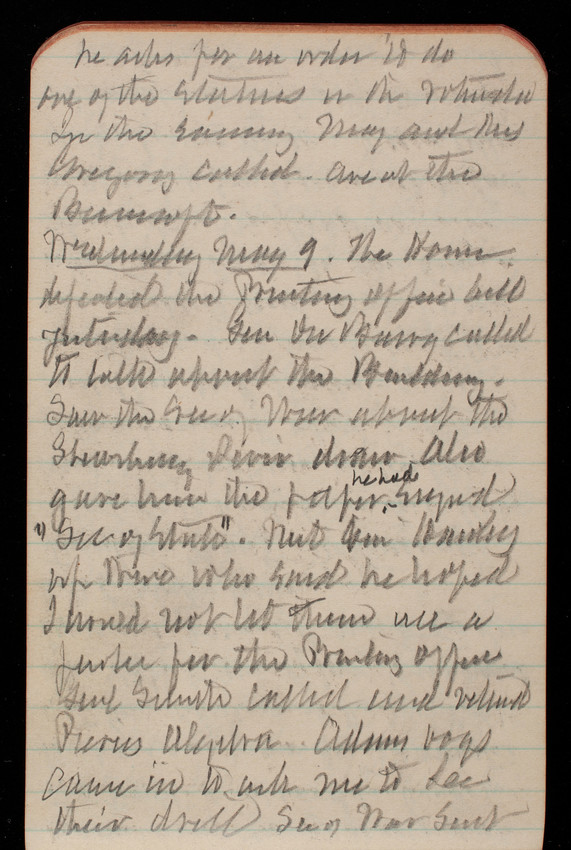 he asks for an order to do
one of the Statues in the rotunda
In the evening May and Mrs
Gregory called. are at the
Bancroft.
Wednesday May 9. The House
defeated the Printing office bill
yesterday. Gen Du Barry called
to talk about the Building.
Saw the Sec of War about the
draw also
gave him the paper he had signed
"Sec of State". Met Gen Hawley
who said he hoped
I would not let them use a
for the Printing office
Genl Smith called and returned
Algebra. Adams boys
came in to ask me to see
their drill Sec of War sent